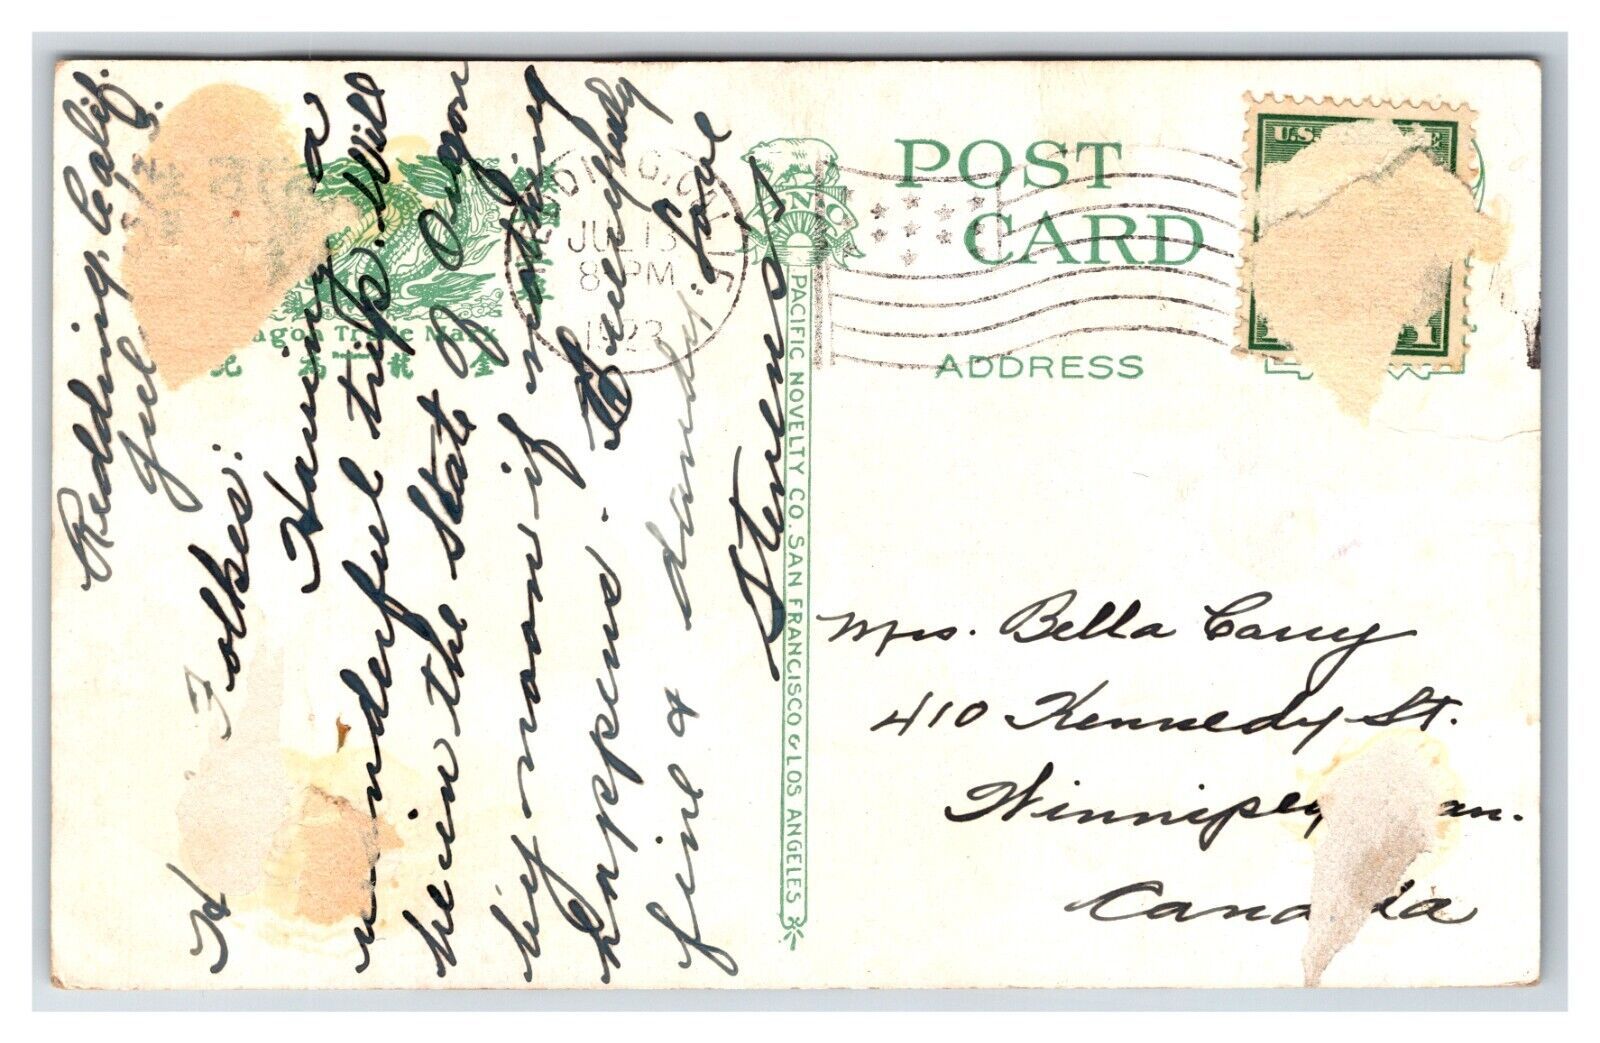 Redding, Calif.
Jul
H Folkes:
Having a
wonderful trip. Will
be in the State of Oregon
by noon if nothing
happens. Everybody
fine & dandy. Love
Dragon Trade Mark
DING, CALIF.
JUL 13
8 PM
1923
PNC
PACIFIC NOVELTY CO. SAN FRANCISCO & LOS ANGELES
POST
CARD
ADDRESS
U.S.
1
Mrs. Bella Carry
410 Kennedy St.
Winnipeg an.
Canada